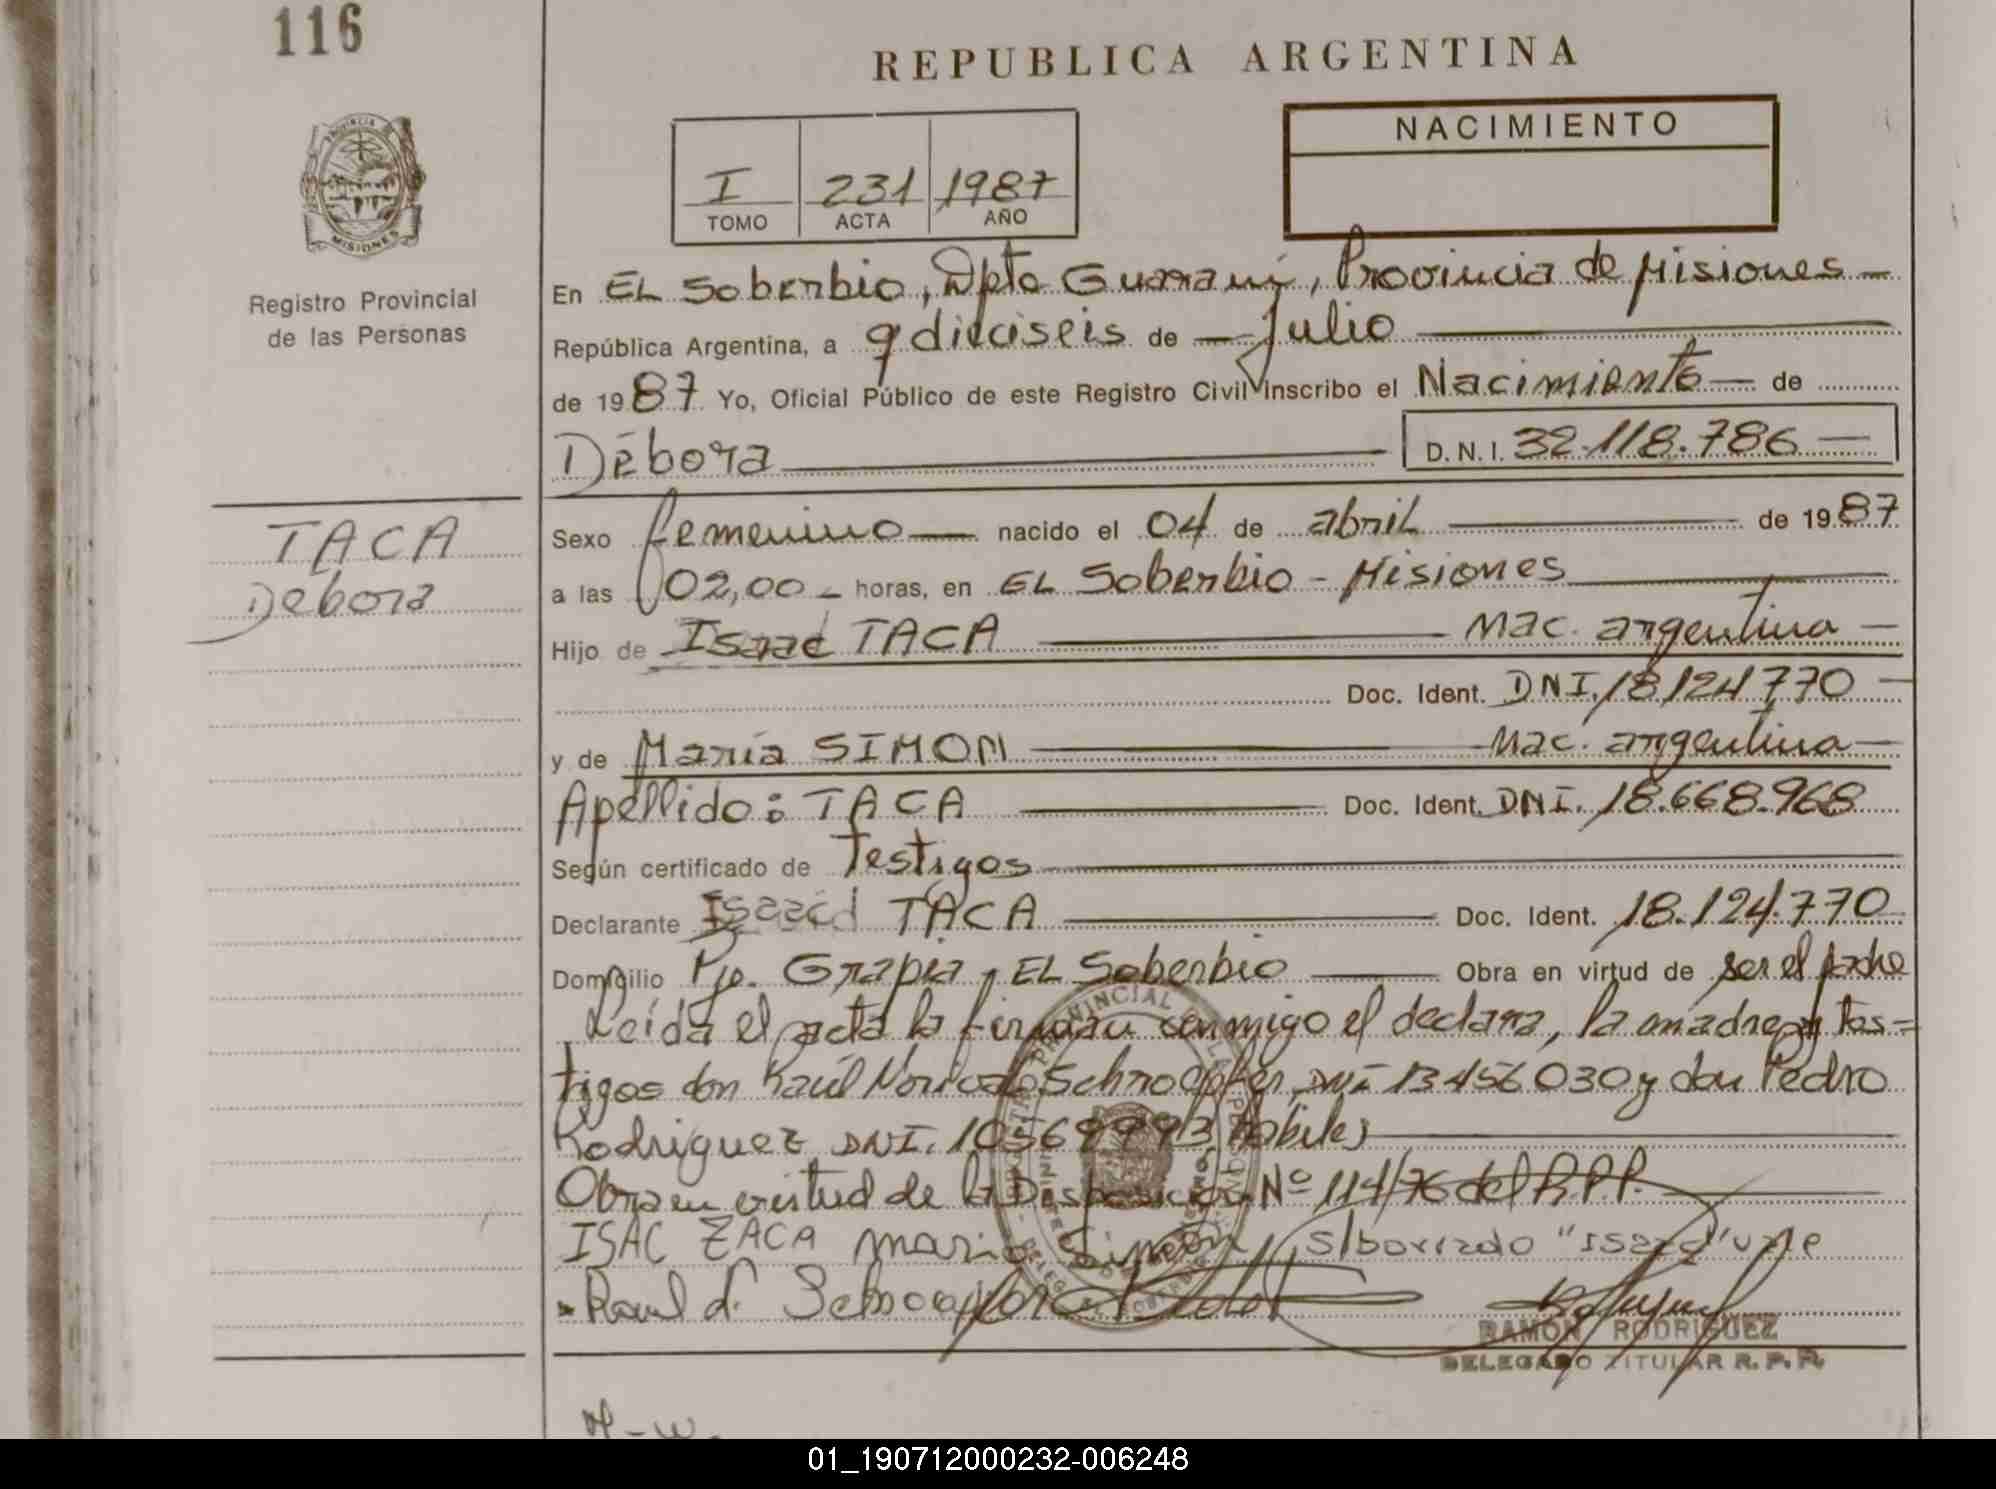 116
REPUBLICA ARGENTINA
NACIMIENTO
I 231 1987
TOMO ACTA AÑO
PROVINCIA DE
MISIONES
Registro Provincial
de las Personas
En EL Soberbio, Dpto Guaraní, Provincia de Misiones
República Argentina, a dieciseis de Julio
de 1987 Yo, Oficial Público de este Registro Civil inscribo el Nacimiento de
Débora D.N.I. 32.118.786
TACA
Debora
Sexo femenino nacido el 04 de abril de 1987
a las 02,00 horas, en EL Soberbio - Misiones
Hijo de Isaac TACA Nac. argentina
Doc. Ident. DNI. 18124770
y de María SIMON Nac. argentina
Apellido: TACA Doc. Ident. DNI. 18.668.968
Según certificado de Testigos
Declarante TACA Doc. Ident. 18.124.770
Domicilio Pje. Grapia, EL Soberbio Obra en virtud de ser el padre
Leída el acta la firman conmigo el declara, la madre y tes=
tigos don Raúl DNI 13456030 y don Pedro
Rodriguez DNI. hábiles
Obra en virtud de la Disposición Nº 114/76 del R.P.P.
ISAC ZACA Maria Simon S/borrado vale
Raul
RAMON RODRIGUEZ
DELEGADO TITULAR R. P. P.
01_190712000232-006248